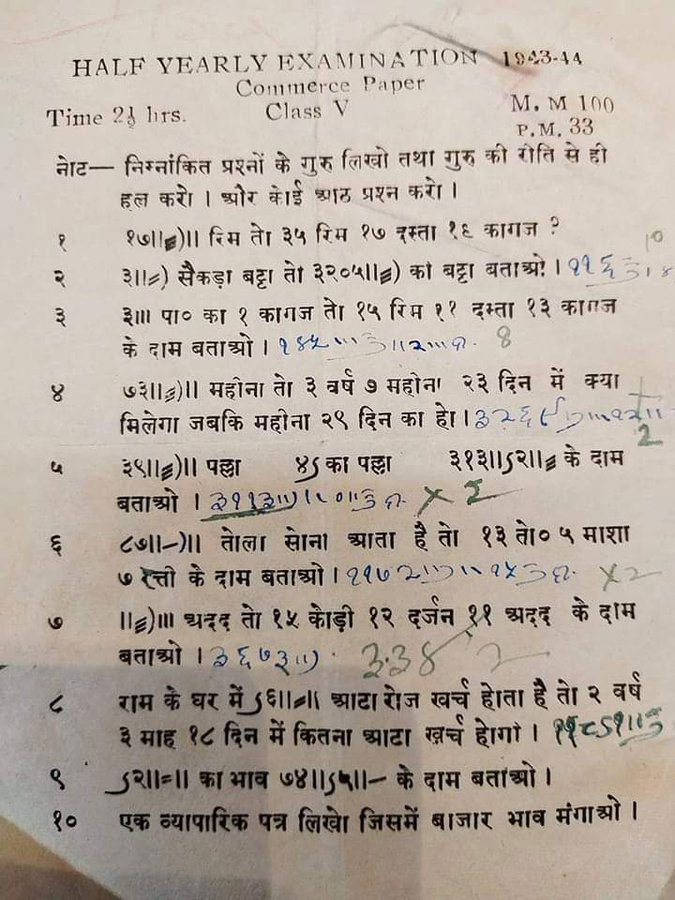 HALF YEARLY EXAMINATION 1943-44
Commerce Paper
Time 2½ hrs. Class V M. M 100
P.M. 33
नोट— निम्नांकित प्रश्नों के गुरु लिखो तथा गुरु की रीति से ही
हल करो । और कोई आठ प्रश्न करो ।
१ १७॥≡)॥ रिम तो ३५ रिम १७ दस्ता १६ कागज ?
२ ३॥=) सैकड़ा बट्टा तो ३२०५॥≡) का बट्टा बताओ ।
३ ३॥। पा० का १ कागज तो १५ रिम ११ दस्ता १३ कागज
के दाम बताओ । 8
४ ७३॥≡)॥ महीना तो ३ वर्ष ७ महीना २३ दिन में क्या
मिलेगा जबकि महीना २९ दिन का हो ।
2
५ ३९॥≡)॥ पल्ला ४ऽ का पल्ला ३१३॥ऽ२॥≡ के दाम
बताओ । × 2
६ ८७॥-)॥ तोला सोना आता है तो १३ तो० ५ माशा
७ रत्ती के दाम बताओ । ×2
७ ॥≡)॥। अदद तो १५ कोड़ी १२ दर्जन ११ अदद के दाम
बताओ ।
८ राम के घर में ऽ६॥=॥ आटा रोज खर्च होता है तो २ वर्ष
३ माह १८ दिन में कितना आटा खर्च होगा ।
९ ऽ२॥=॥ का भाव ७४॥ऽ५॥- के दाम बताओ ।
१० एक व्यापारिक पत्र लिखो जिसमें बाजार भाव मंगाओ ।